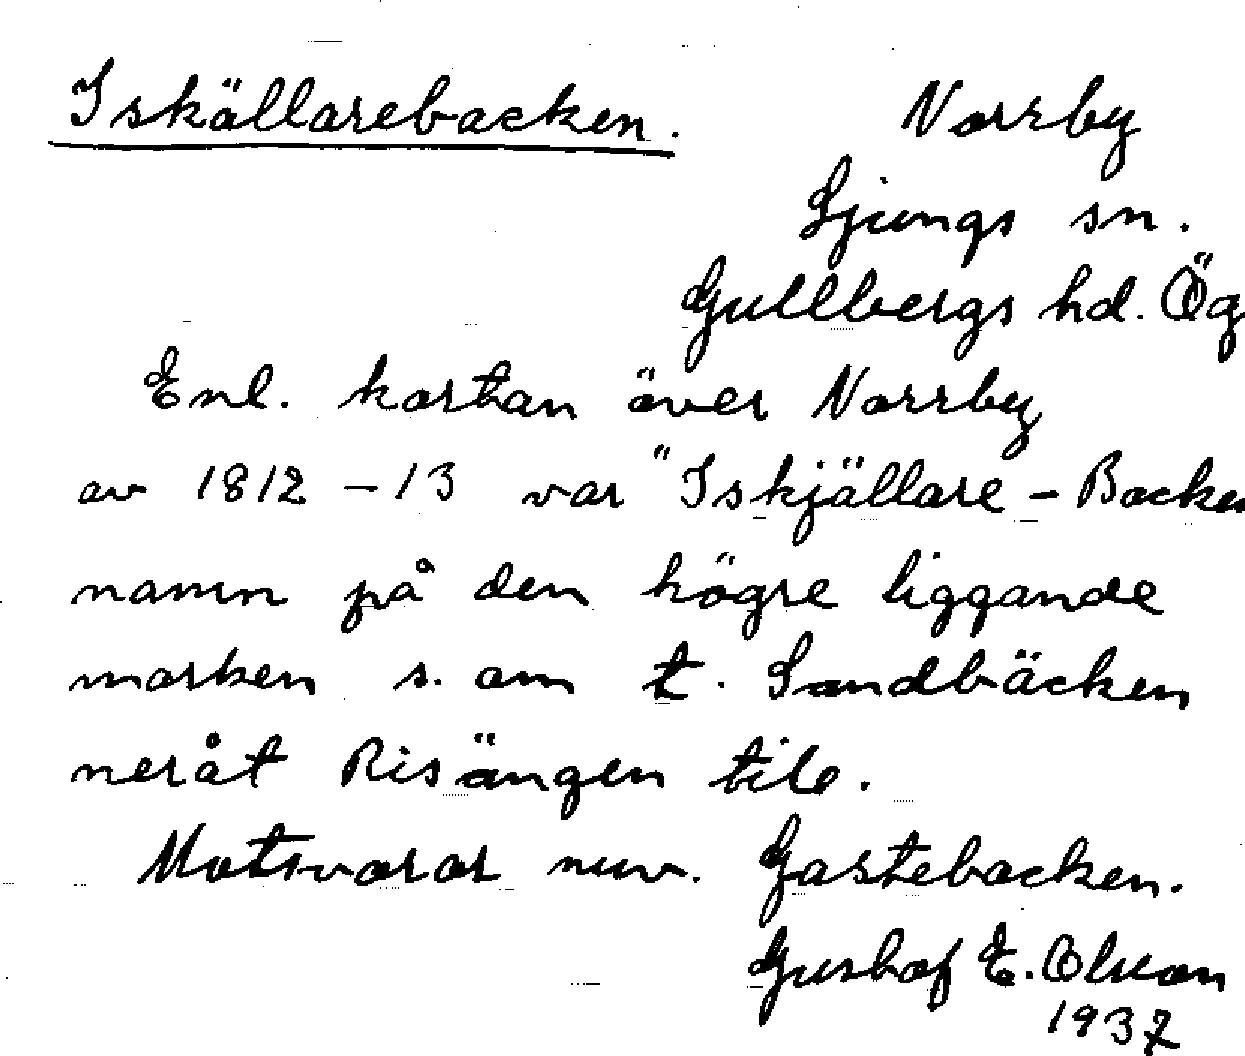 Iskällarebacken. Norrby
Ljungs sn.
Gullbergs hd. Ög
Enl. kartan över Norrby
av 1812-13 var "Iskjällare-Backen
namn på den högre liggande
marken s. om t. Sandbäcken
neråt Risängen till.
Motsvarar nuv. Gastebacken.
Gushaf E. Olson
1937